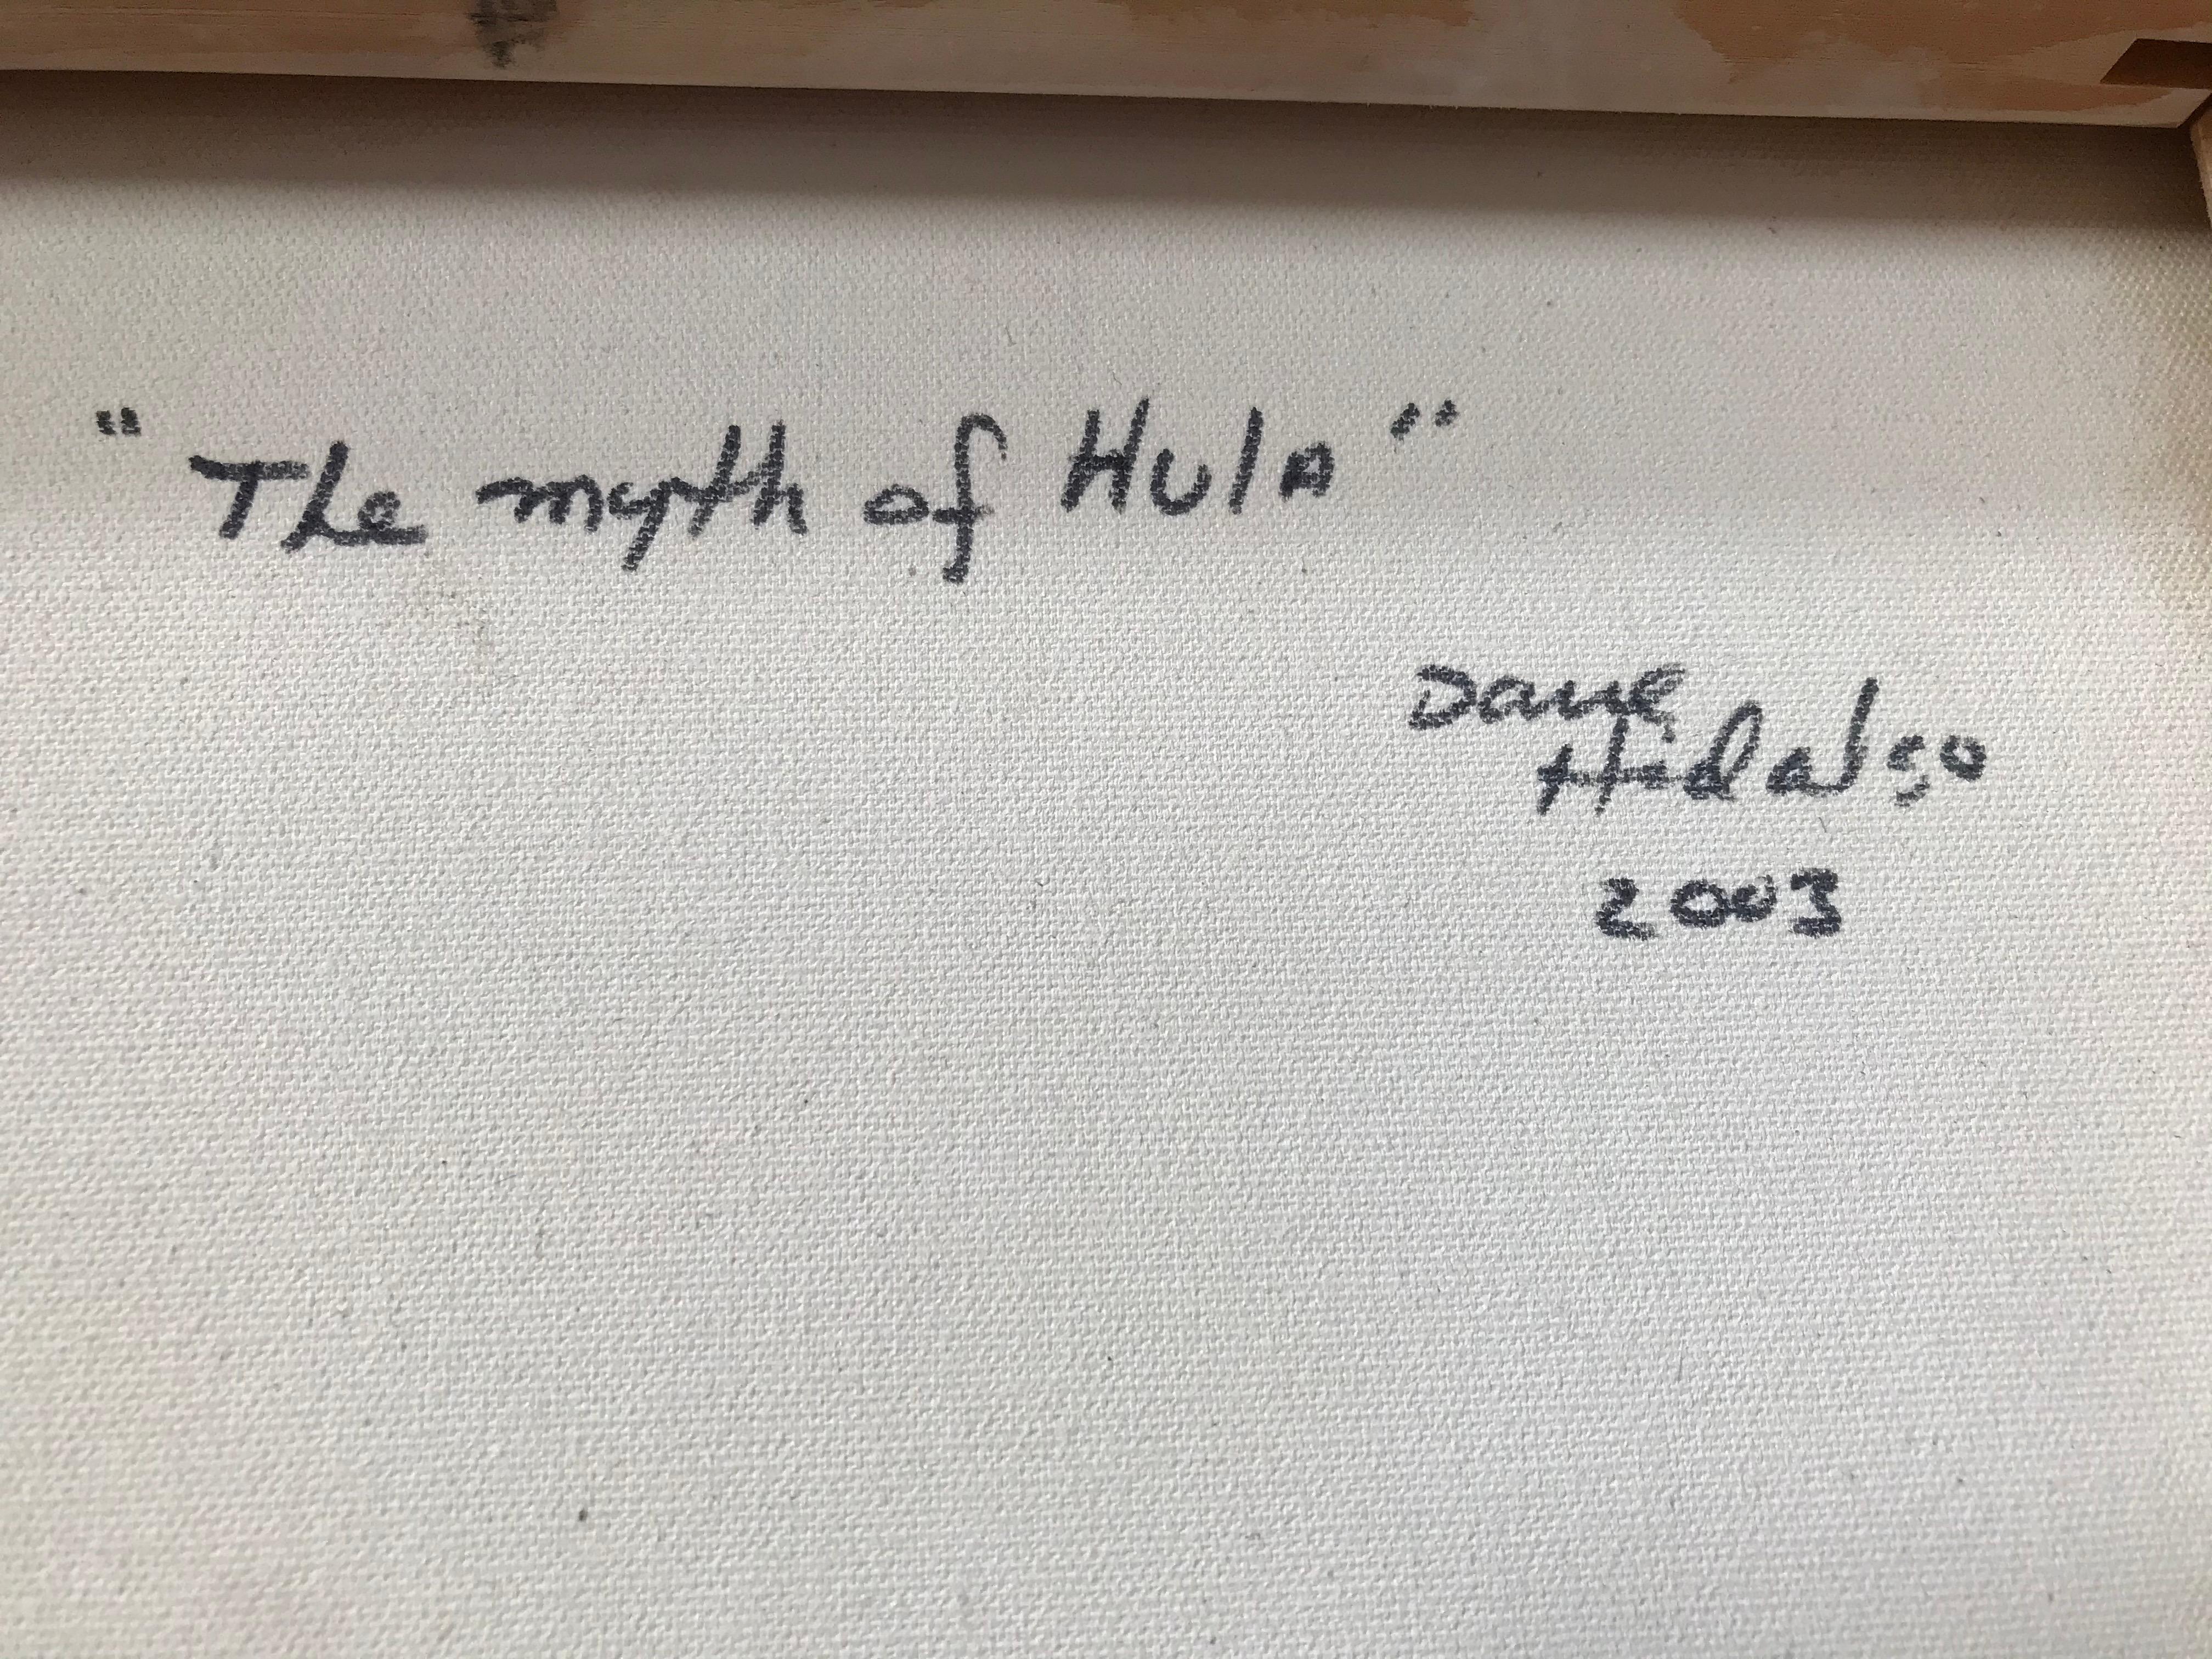 "The myth of Hula"
Dave
Hidalgo
2003